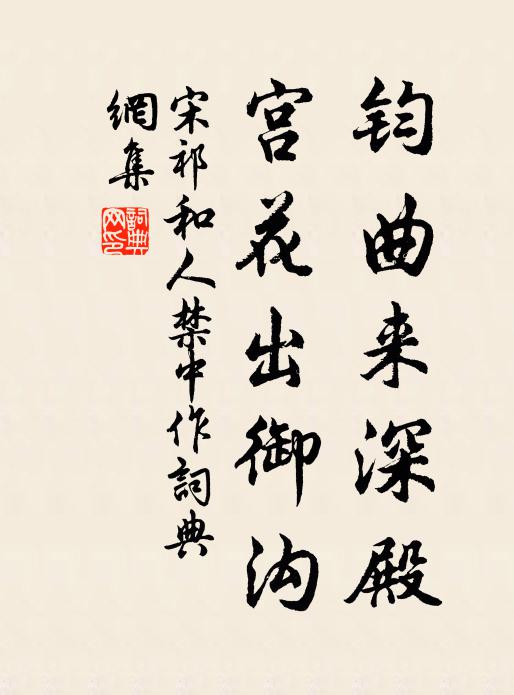 钧曲来深殿
宫花出御沟
宋祁和人禁中作詞典
網集
詞典
网印